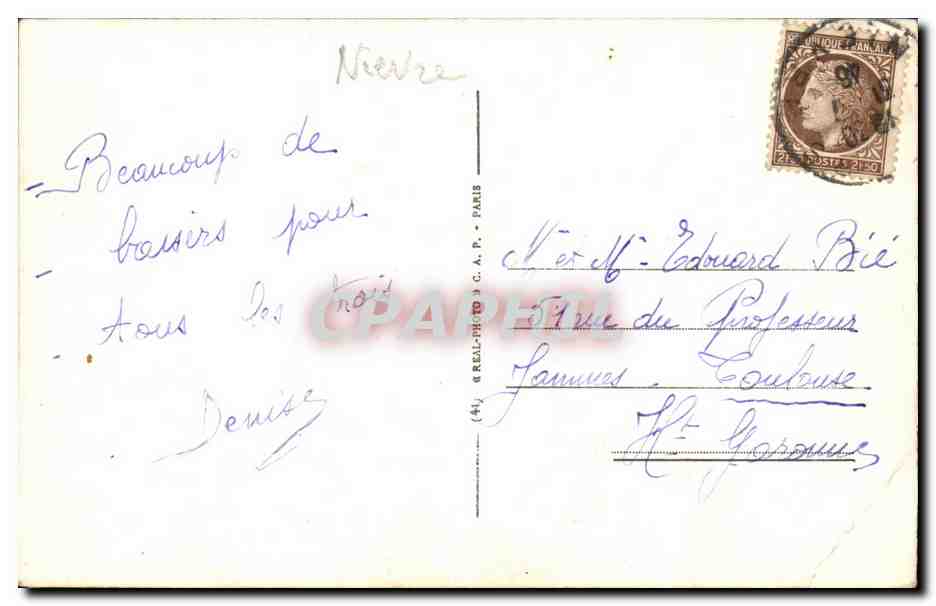 Nièvre
Beaucoup de
baisers pour
tous les trois
Denise
(41) REAL-PHOTO C.A.P. - PARIS
CPAPHIL
RÉPUBLIQUE FRANÇAISE
POSTES 2f50
Mr et Mme Edouard Bié
51 rue du Professeur
Jammes. Toulouse
Hte Garonne